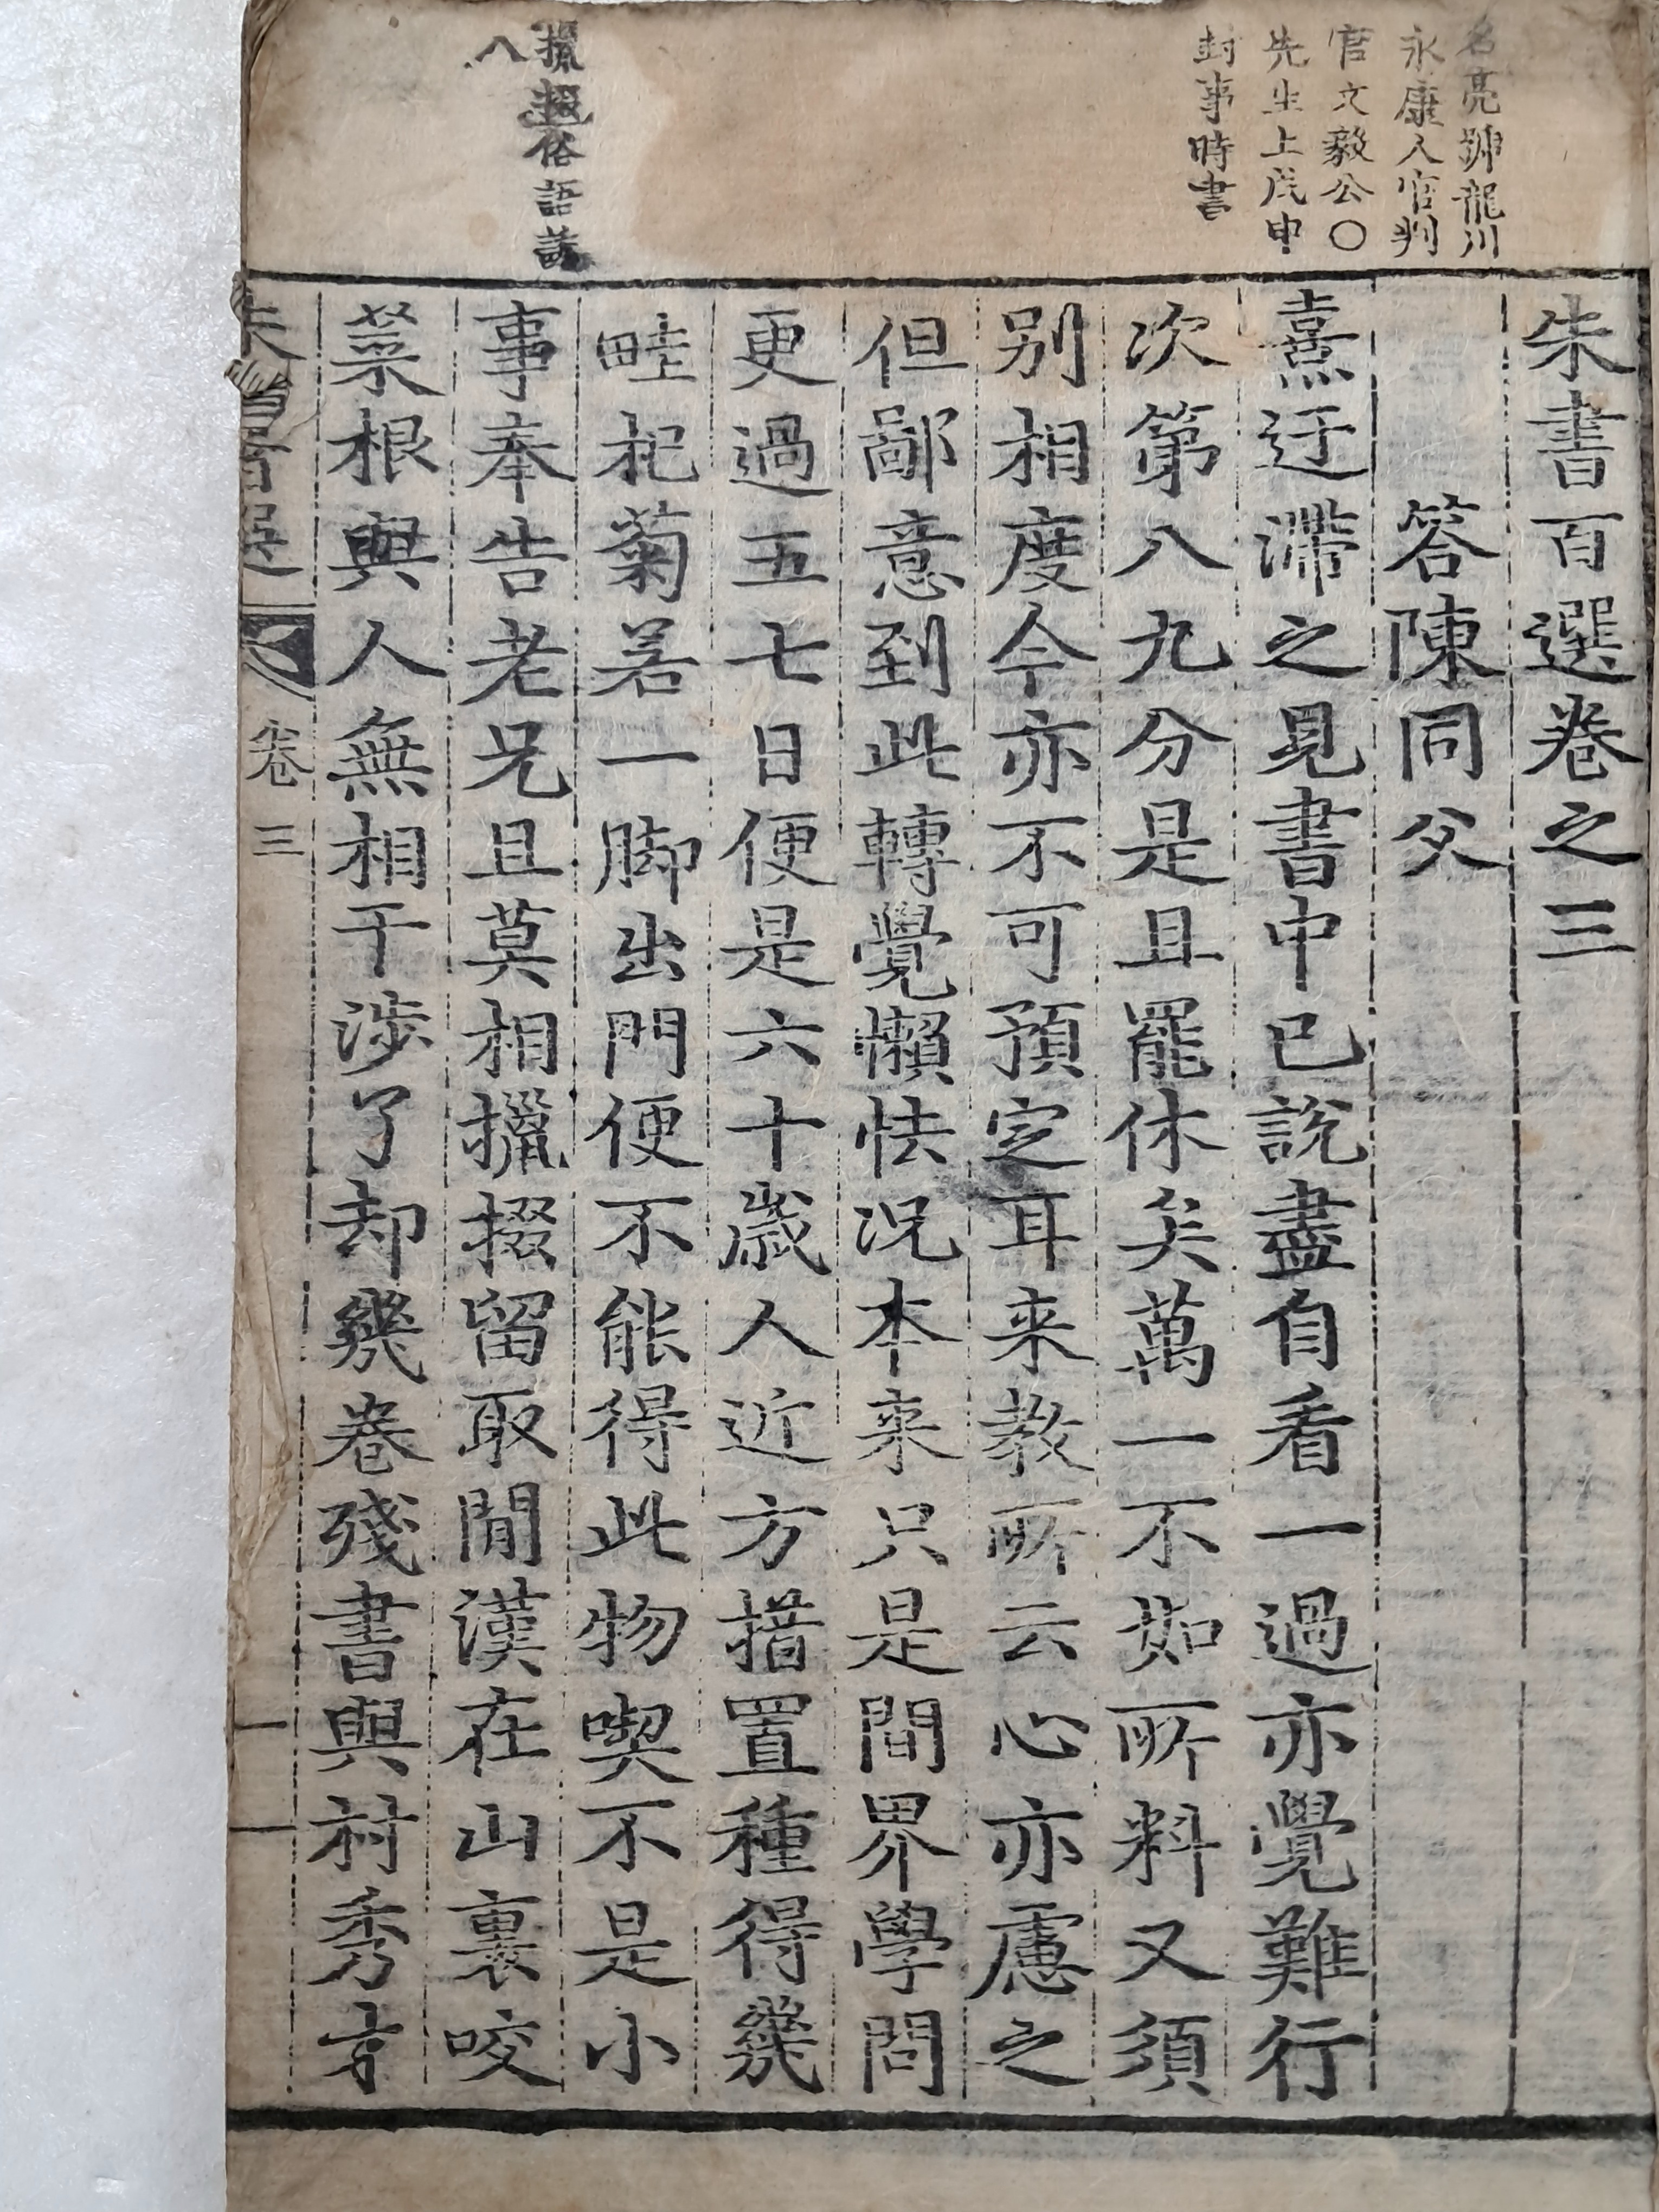 名亮號龍川
永康人官判
官文毅公○
先生上戊申
封事時書
朱書百選卷之三
答陳同父
熹迂滯之見書中已說盡自看一過亦覺難行
次第八九分是且罷休矣萬一不如所料又須
別相度今亦不可預定耳来教所云心亦慮之
但鄙意到此轉覺懶怯况本来只是閒界學問
更過五七日便是六十歲人近方措置種得幾
畦杞菊若一脚出門便不能得此物喫不是小
攛掇俗語誘
人
事奉告老兄且莫相攛掇留取閒漢在山裏咬
菜根與人無相干涉了却幾卷殘書與村秀才
卷三
一